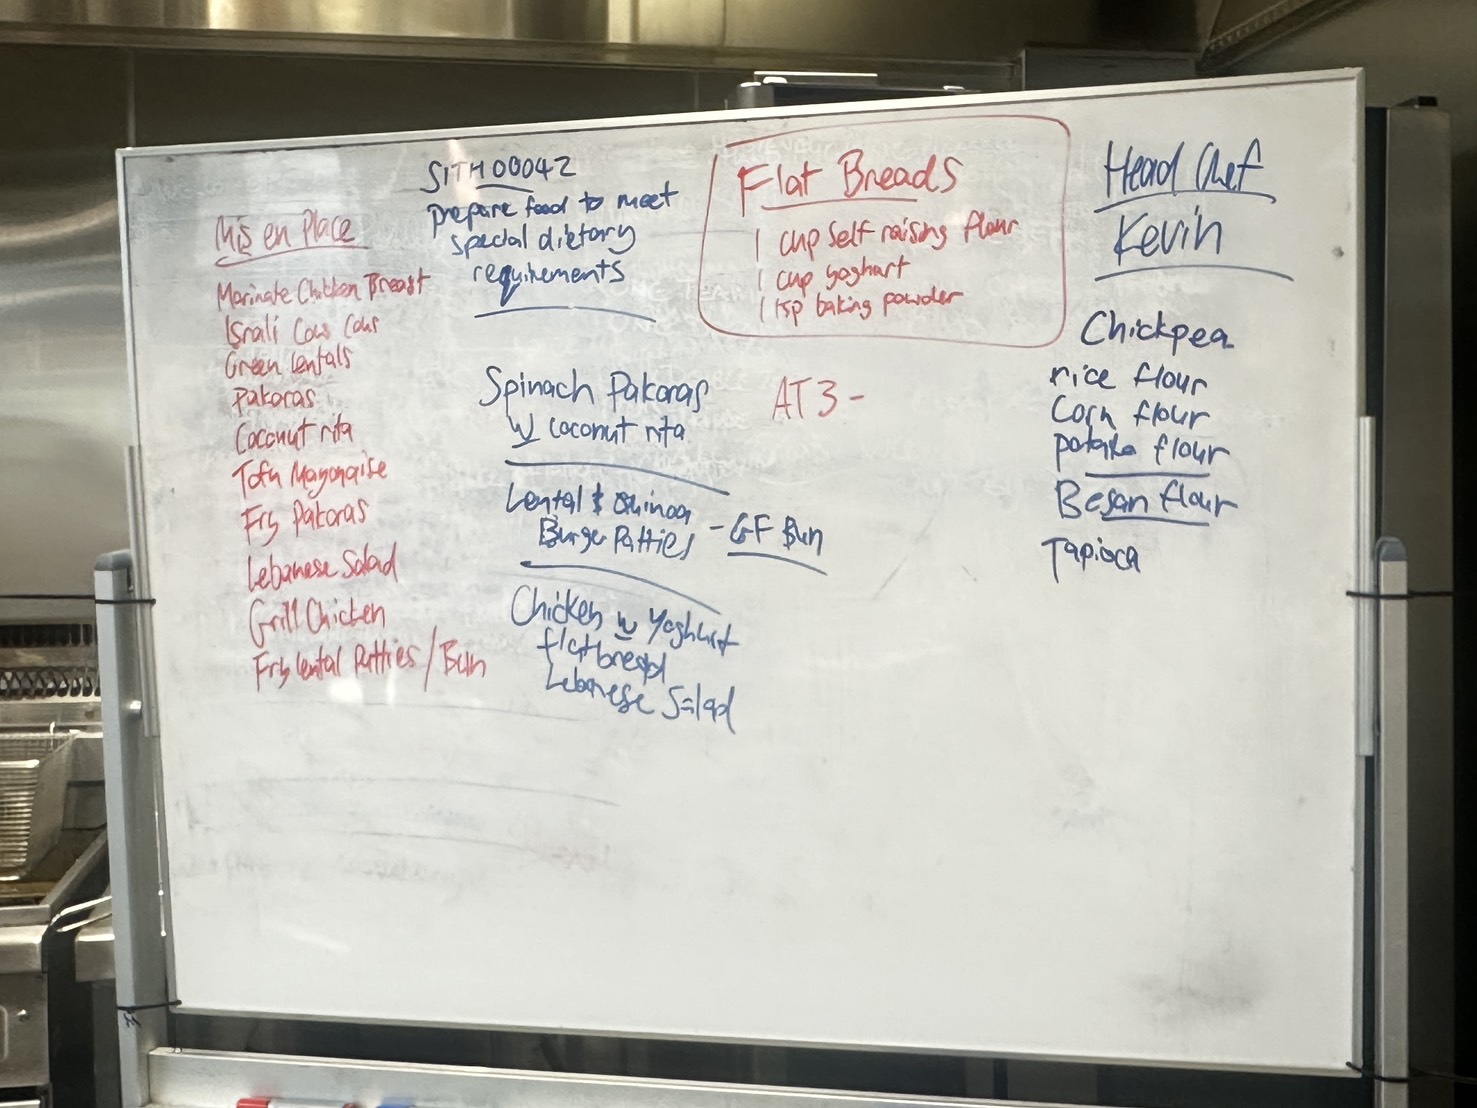 Mis en Place
Marinate Chicken Breast
Israli Cous Cous
Green Lentals
Pakoras
Coconut rita
Tofu Mayonaise
Fry Pakoras
Lebanese Salad
Grill Chicken
Fry Lental Patties / Bun
SITH00042
prepare food to meet
special dietary
requirements
Spinach Pakoras
w coconut rita
Lental & Quinoa
Burge Patties - GF Bun
Chicken w Yoghurt
flatbread
Lebanese Salad
Flat Breads
1 cup self raising flour
1 cup yoghart
1 tsp baking powder
AT3-
Head Chef
Kevin
Chickpea
rice flour
Corn flour
flour
Besan flour
Tapioca